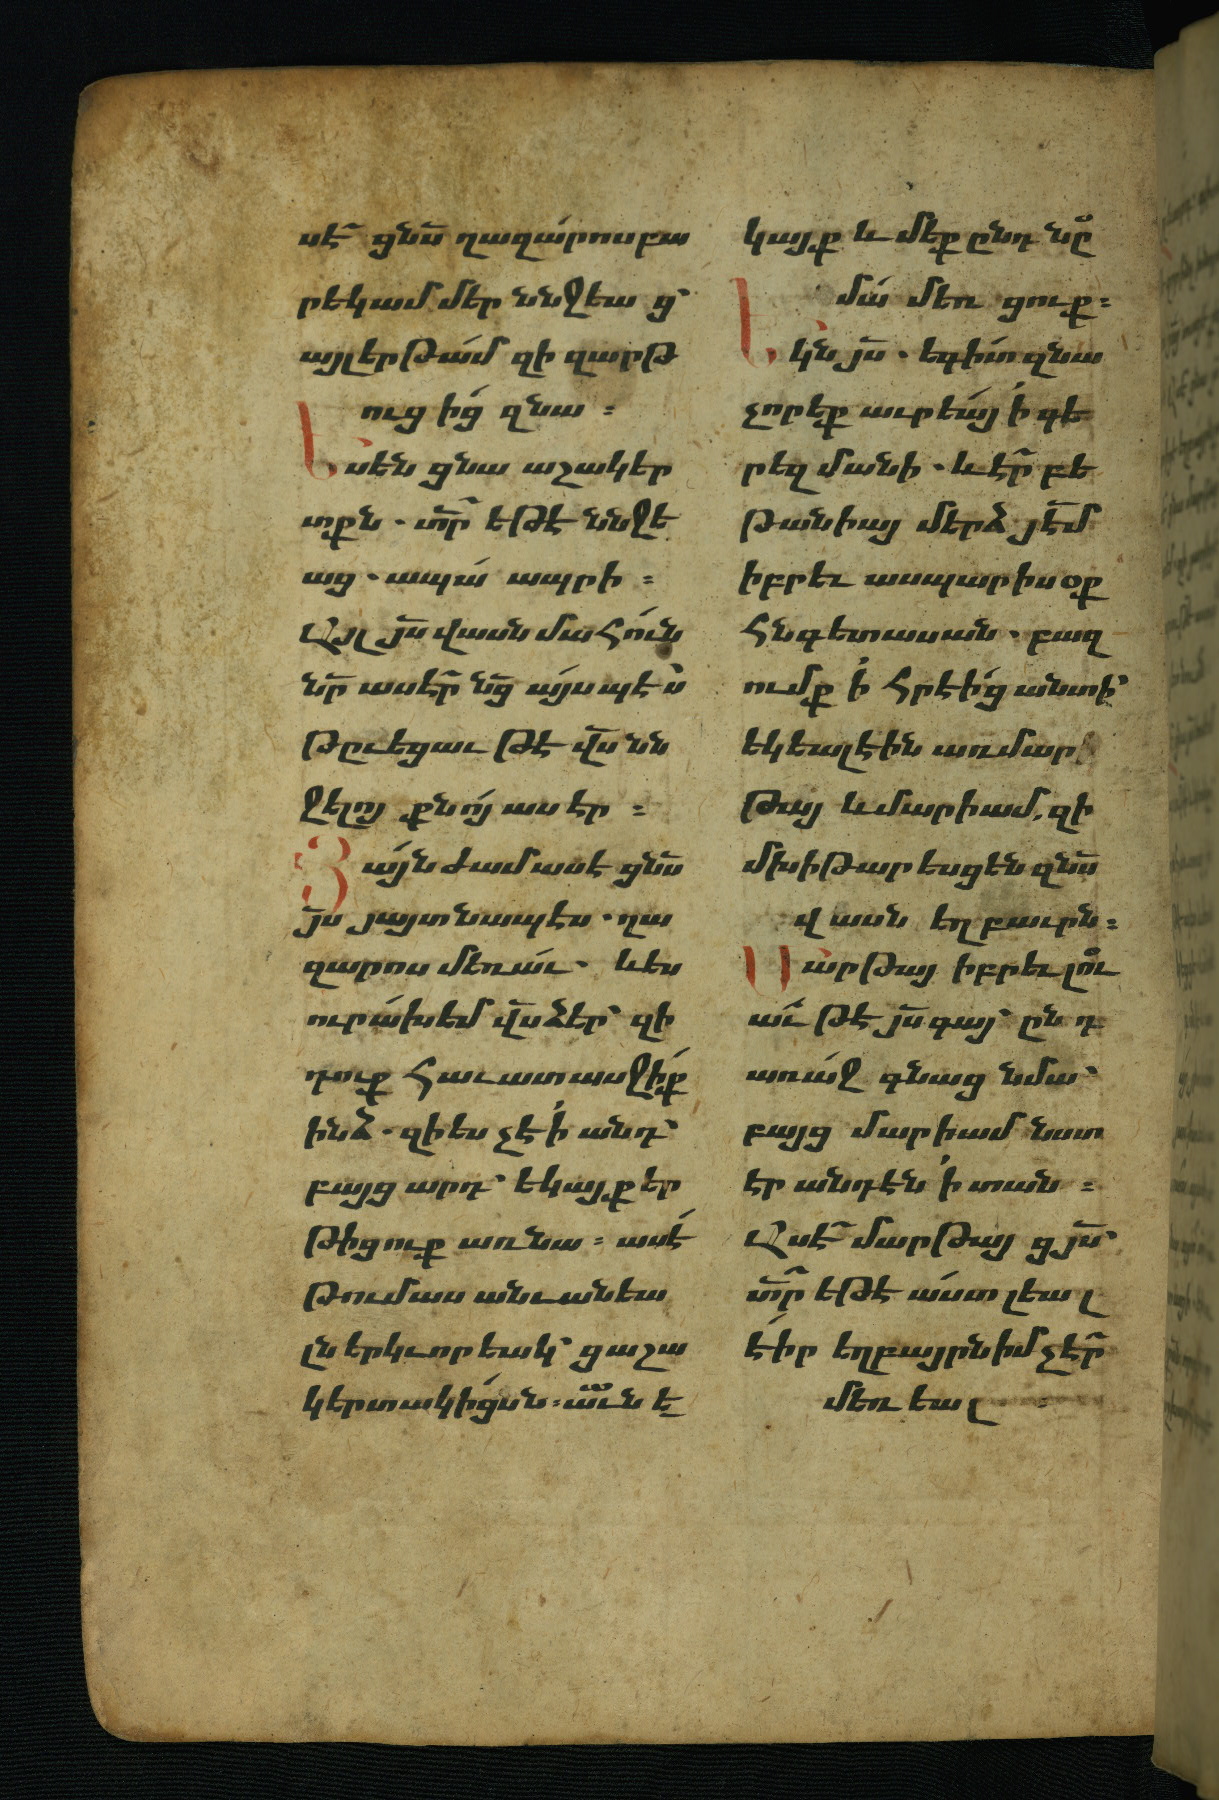 սէ՞ ցնս̄ ղազա́րոս բա
րեկամ մեր ննջեաց՝
այլ երթա́մ զի զարթ
ուցից զնա ։
Ասեն ցնա աշակեր
տքն · տր̄ եթէ ննջե
աց · ապա́ ապրի ։
Այլ յս̄ վասն մահուն
նր̄ ասէր̄ նց̄ այսպէս
թըւեցաւ թէ վս̄ նն
ջելոյ քնոյ ասեր ։
Յայն ժամ ասէ ցնս̄
յս̄ յայտնապէս · ղա
զարոս մեռաւ · և ես
ուրախ եմ վս̄ ձեր՝ զի
դուք հաւատասջիք
ինձ · զի ես չէի անդ՝
բայց արդ՝ եկայք եր
թիցուք առ նա ։ ասէ
թումաս անւանեա
լն երկւորեակ՝ ցաշա
կերտակիցսն ։
կայք և մեք ընդ նը̊
մա մեռցուք ։
Եկն յս̄ · եգիտ զնա
չորեք աւրեայ ի գե
րեզմանի · և էր̄ բե
թանիայ մերձ յէ̄մ
իբրեւ ասպարիսօք
հնգետասան · բազ
ումք ի հրէից անտի՝
եկեալ էին առ մար
թայ և մարիամ, զի
մխիթարեսցեն զնս̄
վասն եղբաւրն ։
Մարթայ իբրեւ լու
աւ̄ թէ յս̄ գայ՝ ընդ
առաջ գնաց նմա՝
բայց մարիամ նստ
էր անդէն ի տան ։
Ասէ՞ մարթայ ցյս̄՝
տր̄ եթէ աստ լեալ
էիր եղբայրն իմ չէր̄
մեռեալ ։